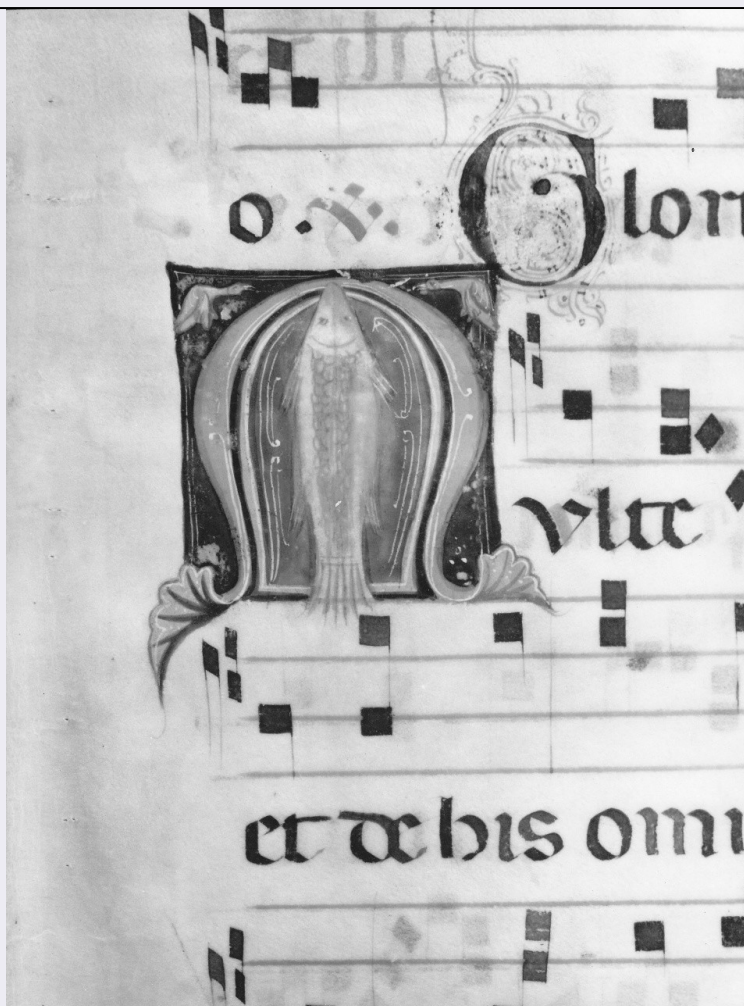 o. ℣. Glori
Mvlte
et de his omni